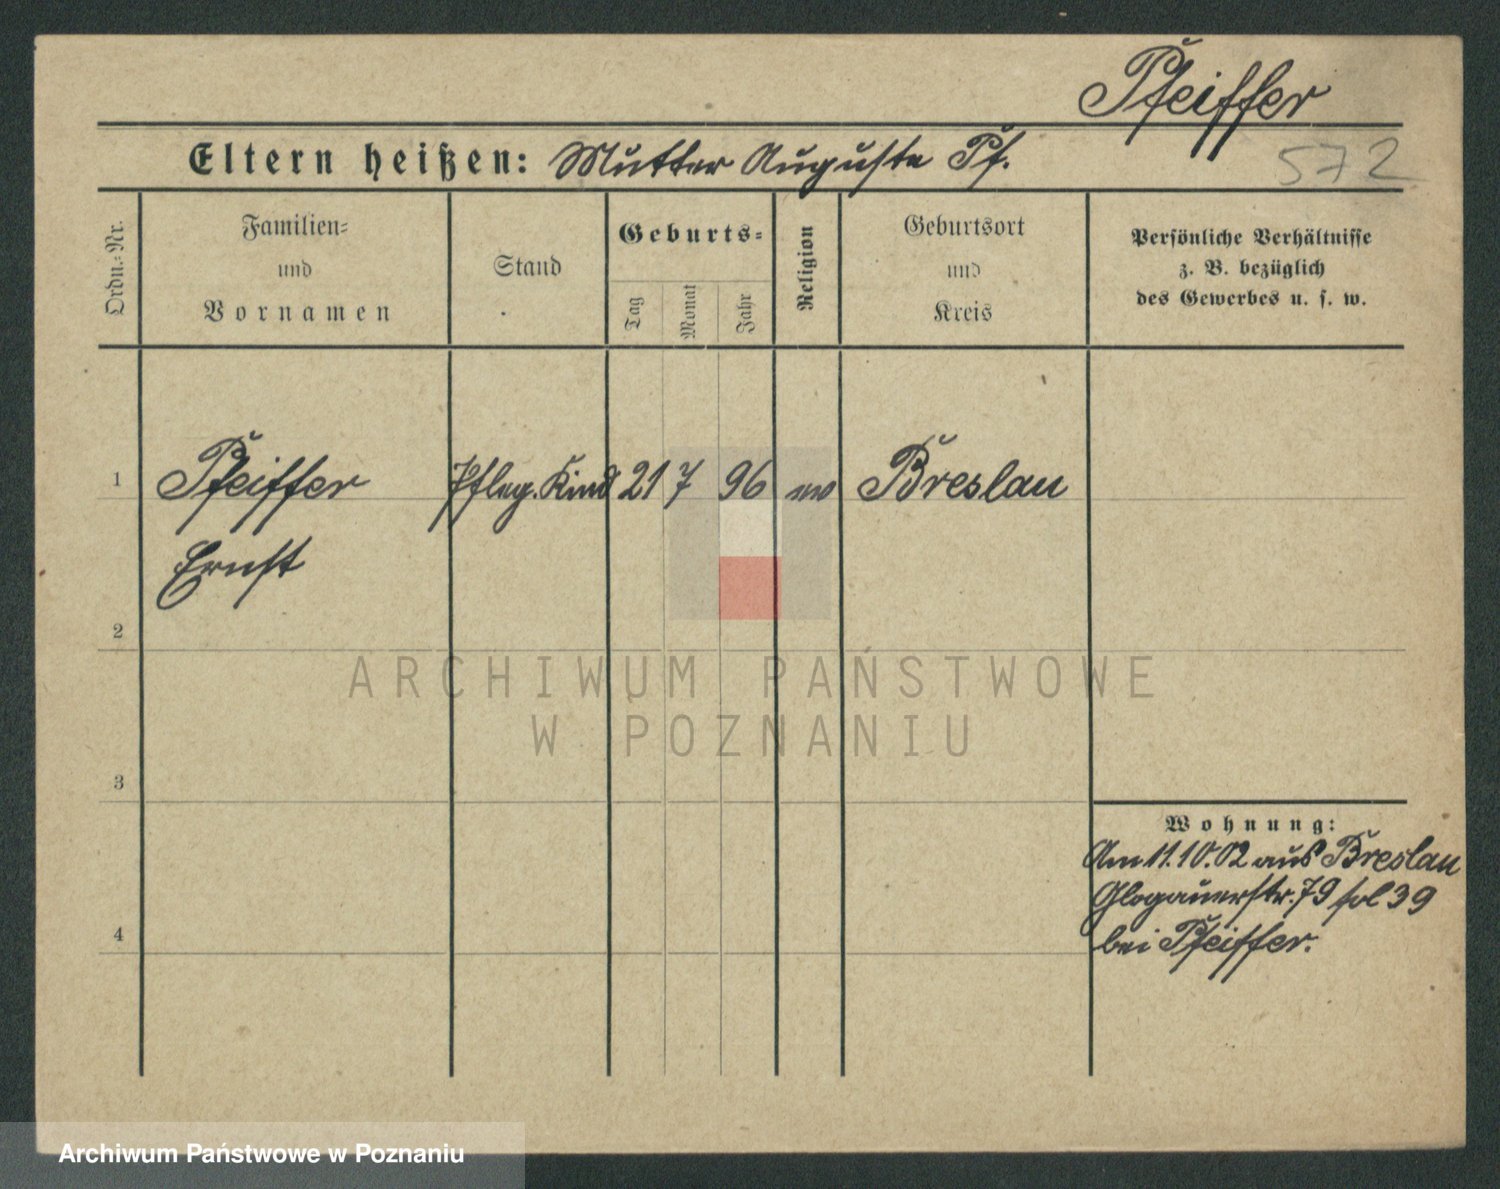 Pfeiffer
572
Eltern heißen: Mutter Auguste Pf.
Ordn.-Nr.
Familien-
und
Vornamen
Stand
Geburts-
Tag
Monat
Jahr
Religion
Geburtsort
und
Kreis
Persönliche Verhältnisse
z. B. bezüglich
des Gewerbes u. s. w.
1 Pfeiffer Pfleg. Kind 21 7 96 ev Breslau
Ernst
2
3
4
Wohnung:
Am 11.10.02 aus Breslau
Glogauerstr. 79 fol 39
bei Pfeiffer.
ARCHIWUM PAŃSTWOWE
W POZNANIU
Archiwum Państwowe w Poznaniu